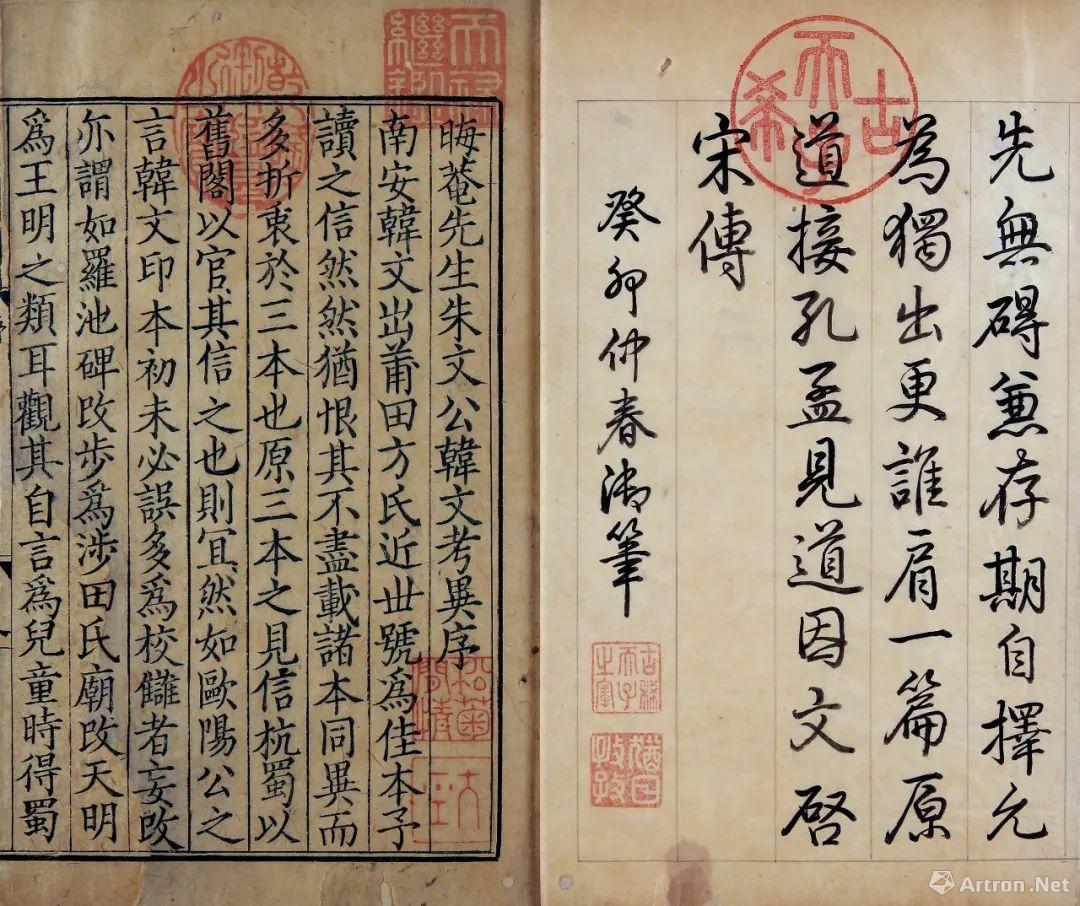 古希天子
先無碍兼存期自擇允
為獨出更誰肩一篇原
道接孔孟見道因文啓
宋傳
癸卯仲春御筆
古稀天子之寶
猶日孜孜
天祿繼鑑
乾隆御覽之寶
晦菴先生朱文公韓文考異序
南安韓文出莆田方氏近世號爲佳本予
讀之信然然猶恨其不盡載諸本同異而
多折衷於三本也原三本之見信杭蜀以
舊閣以官其信之也則冝然如歐陽公之
言韓文印本初未必誤多爲校讎者妄改
亦謂如羅池碑改步爲涉田氏廟改天明
爲王明之類耳觀其自言爲兒童時得蜀
Artron.Net